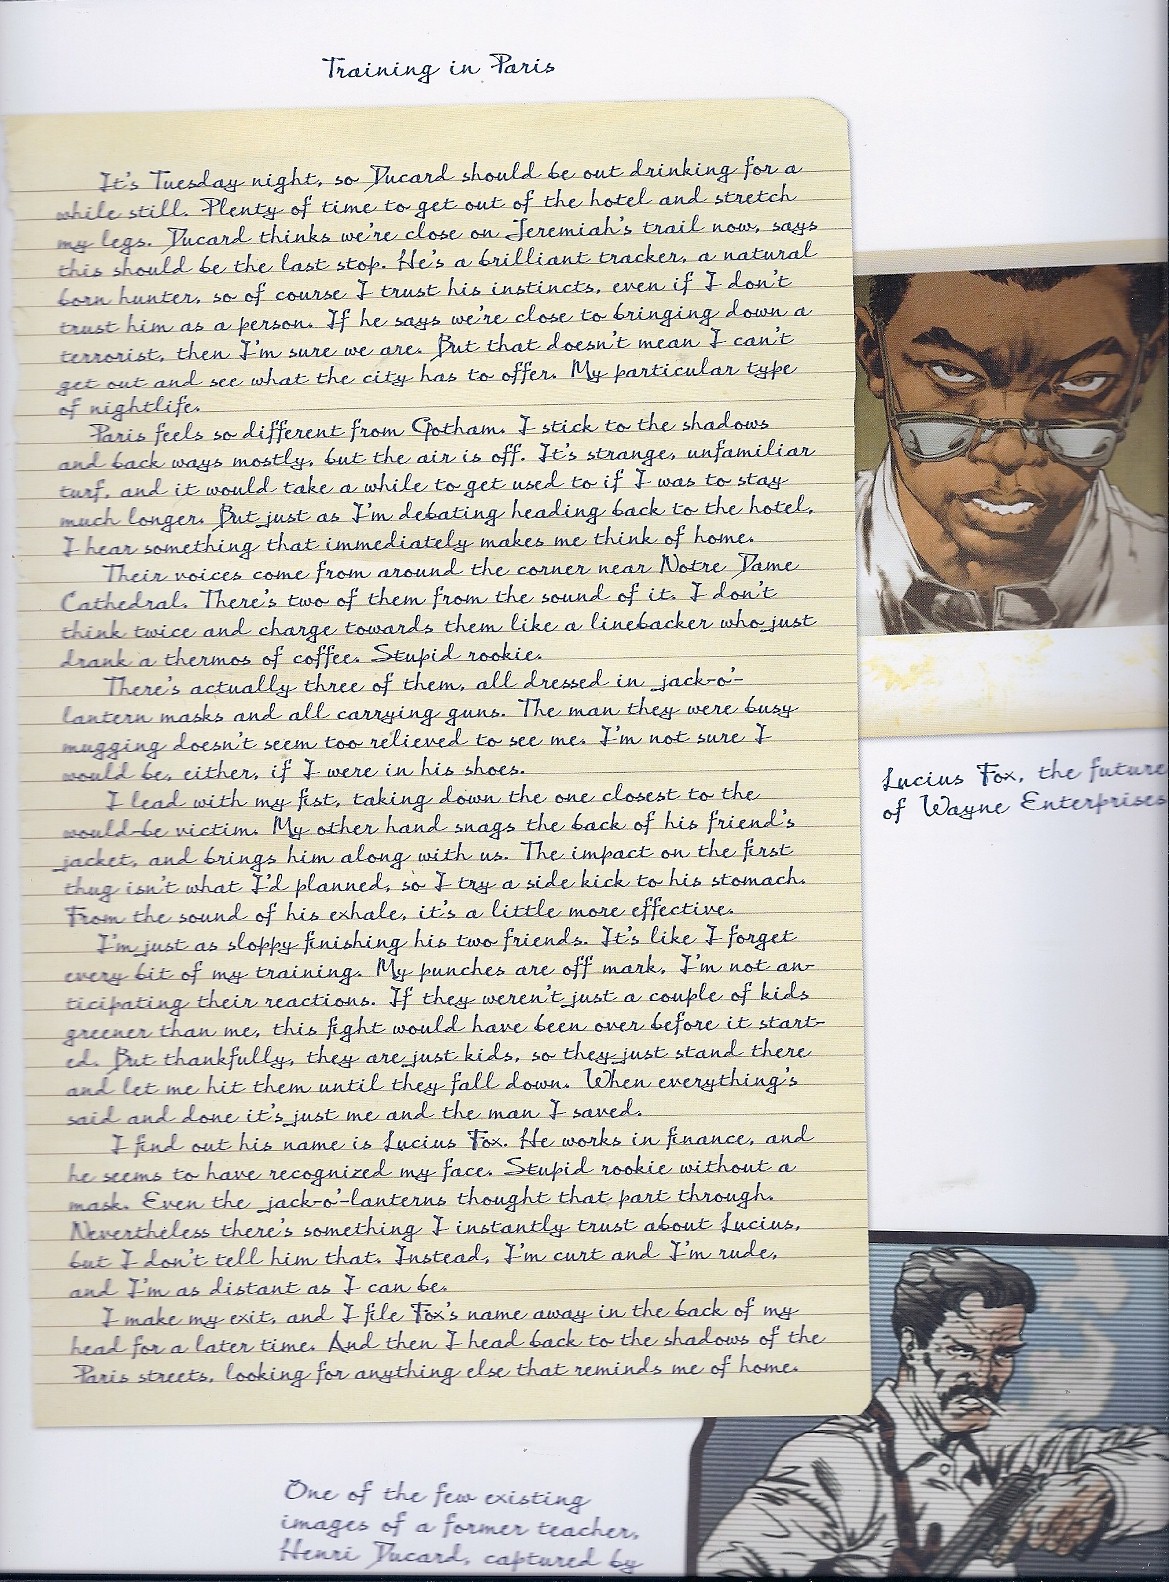 Training in Paris
It's Tuesday night, so Ducard should be out drinking for a
while still. Plenty of time to get out of the hotel and stretch
my legs. Ducard thinks we're close on Jeremiah's trail now, says
this should be the last stop. He's a brilliant tracker, a natural
born hunter, so of course I trust his instincts, even if I don't
trust him as a person. If he says we're close to bringing down a
terrorist, then I'm sure we are. But that doesn't mean I can't
get out and see what the city has to offer. My particular type
of nightlife.
Paris feels so different from Gotham. I stick to the shadows
and back ways mostly, but the air is off. It's strange, unfamiliar
turf, and it would take a while to get used to if I was to stay
much longer. But just as I'm debating heading back to the hotel,
I hear something that immediately makes me think of home.
Their voices come from around the corner near Notre Dame
Cathedral. There's two of them from the sound of it. I don't
think twice and charge towards them like a linebacker who just
drank a thermos of coffee. Stupid rookie.
There's actually three of them, all dressed in jack-o'-
lantern masks and all carrying guns. The man they were busy
mugging doesn't seem too relieved to see me. I'm not sure I
would be, either, if I were in his shoes.
I lead with my fist, taking down the one closest to the
would-be victim. My other hand snags the back of his friend's
jacket, and brings him along with us. The impact on the first
thug isn't what I'd planned, so I try a side kick to his stomach.
From the sound of his exhale, it's a little more effective.
I'm just as sloppy finishing his two friends. It's like I forget
every bit of my training. My punches are off mark, I'm not an-
ticipating their reactions. If they weren't just a couple of kids
greener than me, this fight would have been over before it start-
ed. But thankfully, they are just kids, so they just stand there
and let me hit them until they fall down. When everything's
said and done it's just me and the man I saved.
I find out his name is Lucius Fox. He works in finance, and
he seems to have recognized my face. Stupid rookie without a
mask. Even the jack-o'-lanterns thought that part through.
Nevertheless there's something I instantly trust about Lucius,
but I don't tell him that. Instead, I'm curt and I'm rude,
and I'm as distant as I can be.
I make my exit, and I file Fox's name away in the back of my
head for a later time. And then I head back to the shadows of the
Paris streets, looking for anything else that reminds me of home.
Lucius Fox, the future
of Wayne Enterprises
One of the few existing
images of a former teacher,
Henri Ducard, captured by